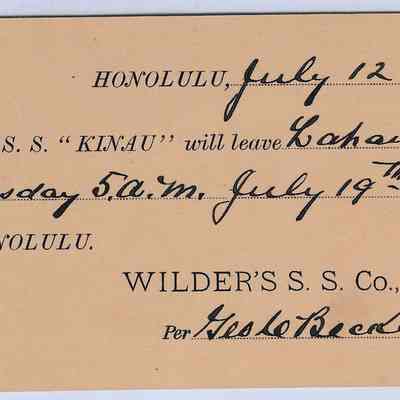 HONOLULU, July 12
S. S. "KINAU" will leave Lahai
sday 5. a.m. July 19th
NOLULU.
WILDER'S S. S. Co.,
Per